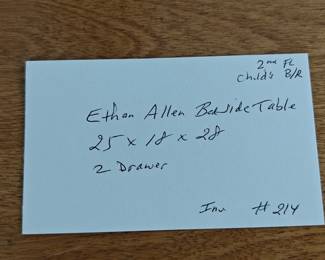 2nd FL
Child's B/R
Ethan Allen Bedside Table
25 x 18 x 28
2 Drawer
Inv # 214